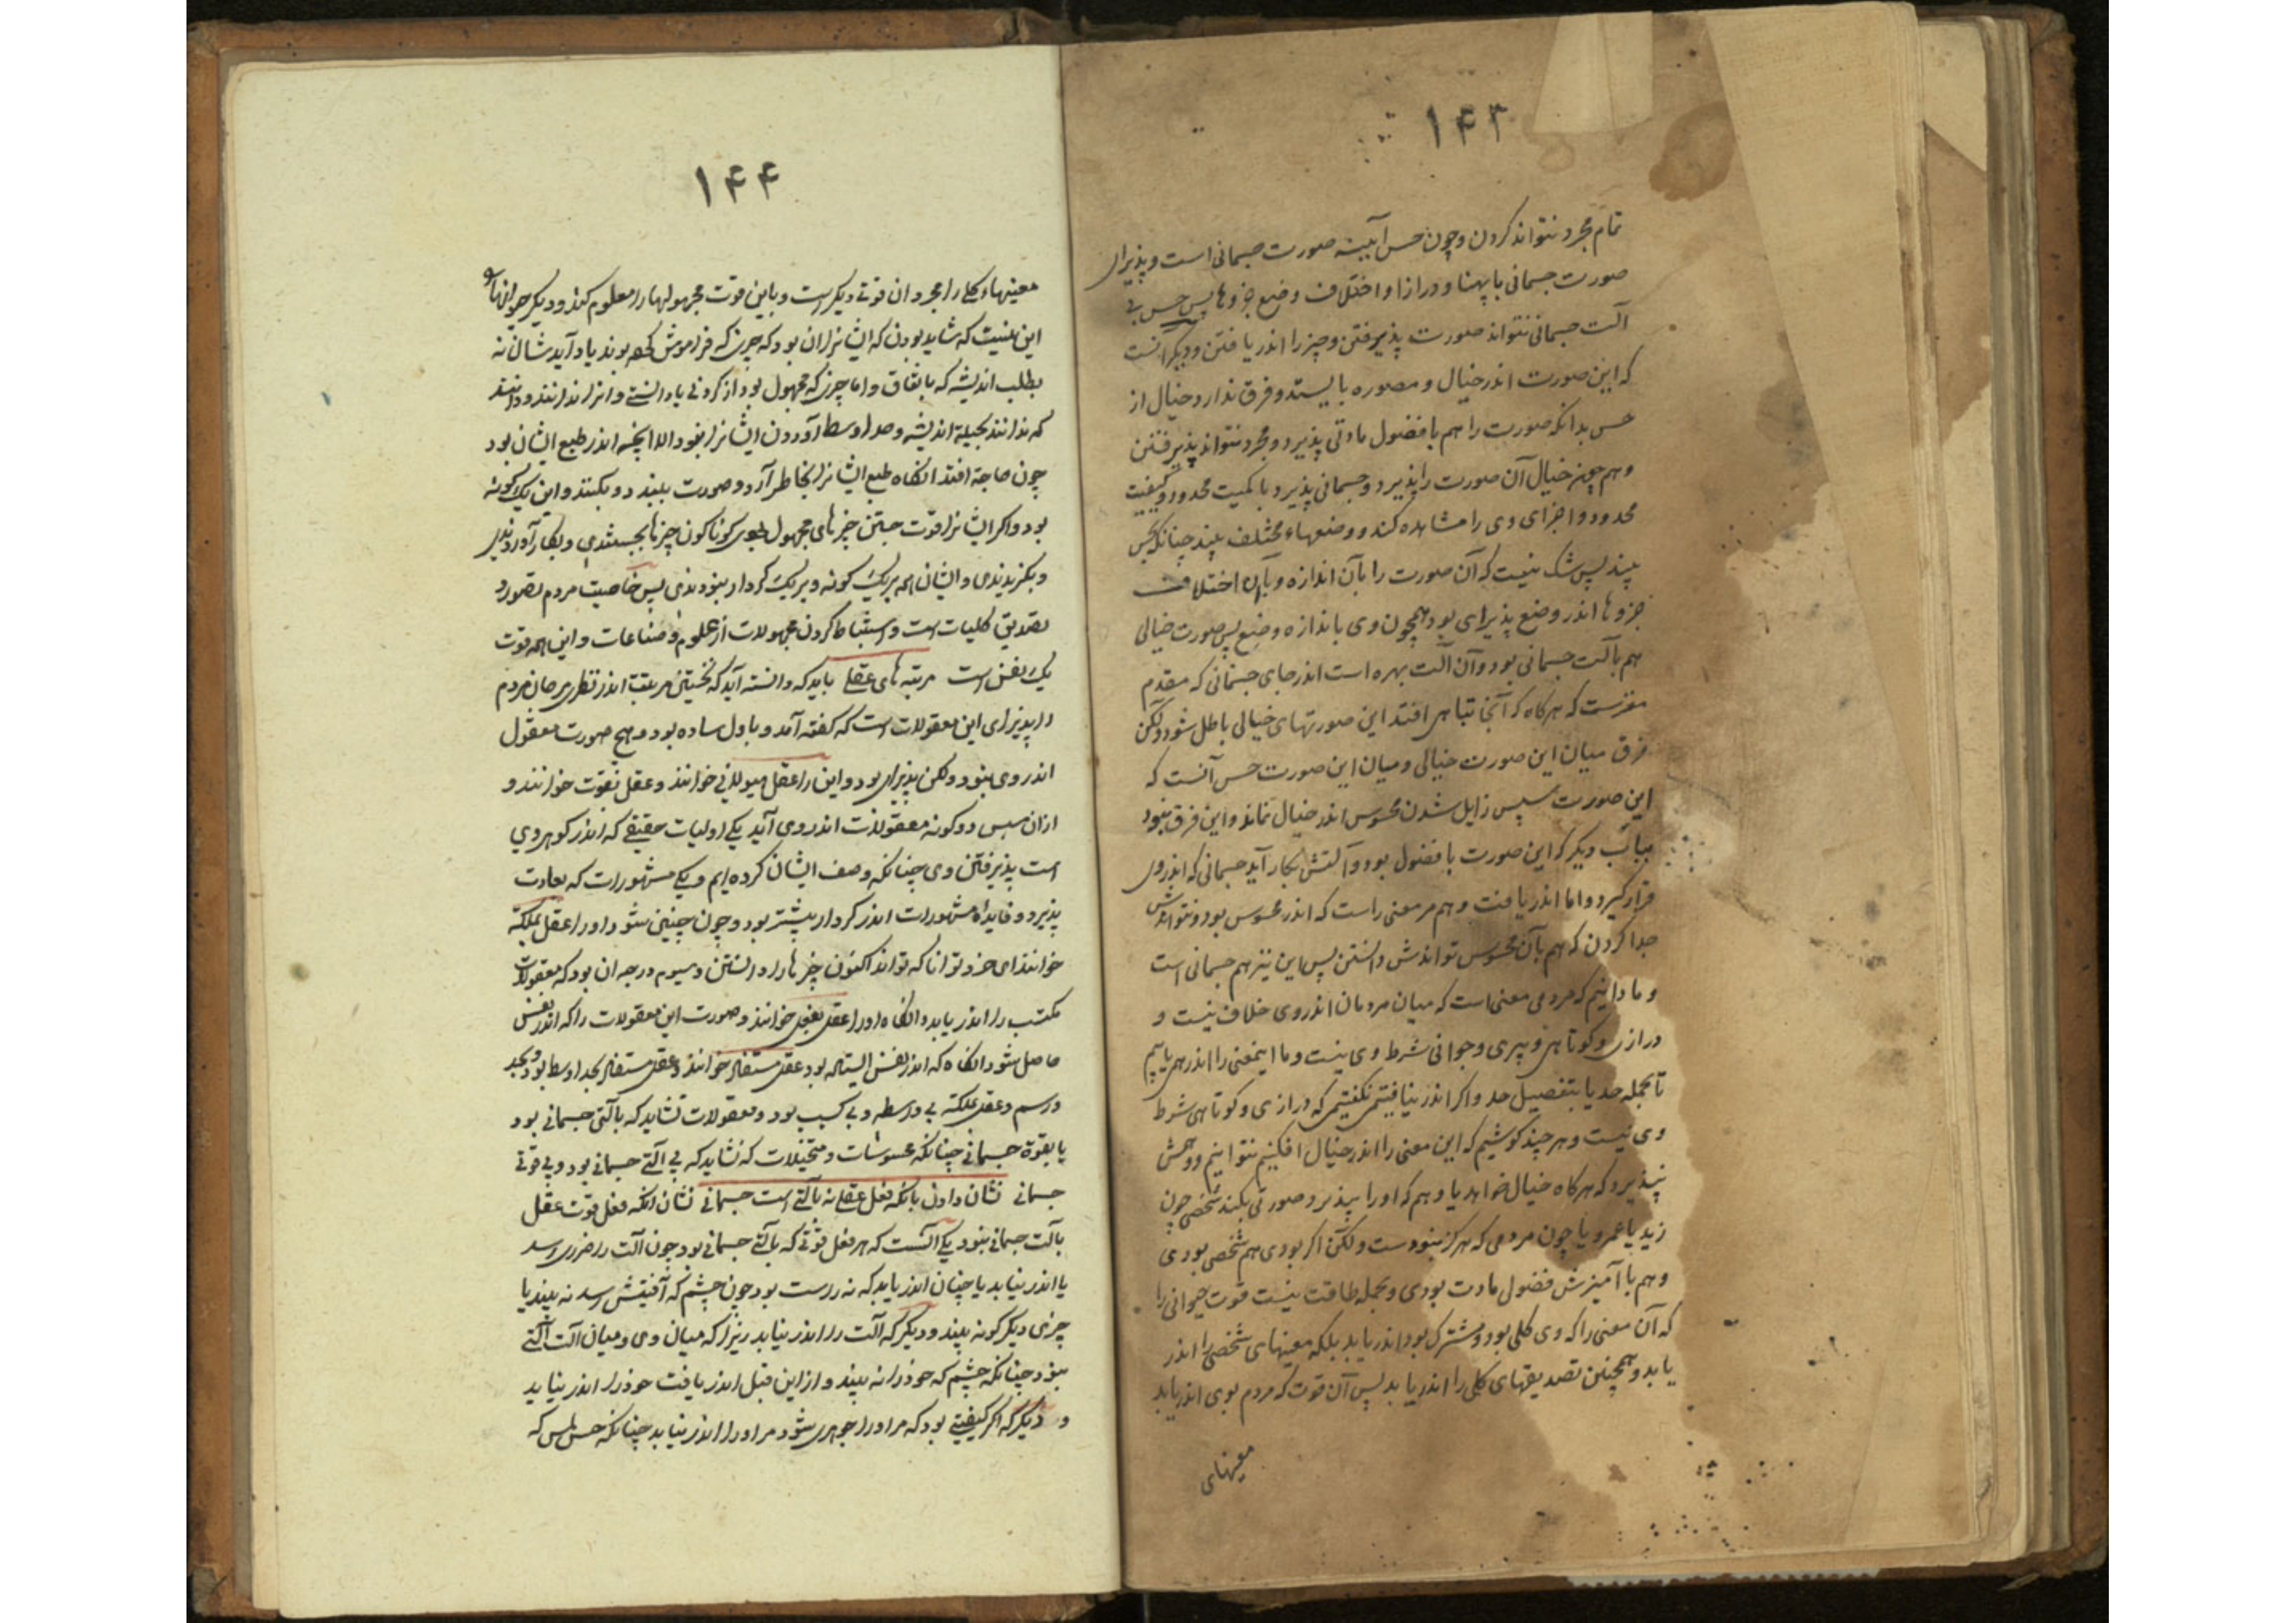 ۱۴۳
تمام مجرد نتواند کردن و چون حس آیینه صورت جسمانی است و پذیرای
صورت جسمانی با پهنا و درازا و اختلاف وضع جزوها پس حس بی
آلت جسمانی نتواند صورت پذیرفتن و چیز را اندر یافتن و دیگر آنست
که این صورت اندر خیال و مصوره بایستد و فرق ندارد خیال از
حس بدانکه صورت را هم با فضول مادتی پذیرد و مجرد نتواند پذیرفتن
و هم چون خیال آن صورت را پذیرد و جسمانی پذیرد با کمیت محدود و کیفیت
محدود و اجزای وی را مشاهده کند و وضعهاء مختلف بیند چنانکه بحس
بیند پس شک نیست که آن صورت را بآن اندازه و بآن اختلاف
جزوها اندر وضع پذیرای بود همچون وی باندازه وضع پس صورت خیالی
هم بآلت جسمانی بود و آن آلت بهره است اندر جای جسمانی که مقدم
مغزست که هرگاه که آنجا تباهی افتد این صورتهای خیالی باطل شود ولکن
فرق میان این صورت خیالی و میان این صورت حس آنست که
این صورت سپس زایل شدن محسوس اندر خیال نماند و این فرق نبود
بباب دیگر که این صورت با فضول بود و آلتش بکار آید جسمانی که اندروی
قرار گیرد و اما اندر یافت وهم مر معنی راست که اندر محسوس بود و نتواندش
جدا کردن که هم بآن محسوس تواندش دانستن پس این نیز هم جسمانی است
و ما دانیم که مردمی معنی است که میان مردمان اندروی خلاف نیست و
درازی و کوتاهی و پیری و جوانی شرط وی نیست و ما اینمعنی را اندر همی یابیم
تا بجمله حد یا بتفصیل حد و اگر اندر نیافتیمی نگفتیمی که درازی و کوتاهی شرط
وی نیست و هر چند کوشیم که این معنی را اندر خیال افکنیم نتوانیم و وهمش
نپذیرد که هرگاه خیال خواهد یا وهم که او را بپذیرد صورتی بکند شخصی چون
زید یا عمرو یا چون مردمی که هرگز نبودست ولکن اگر بودی هم شخصی بودی
و هم با آمیزش فضول مادت بودی و بجمله طاقت نیست قوت حیوانی را
که آن معنی را که وی کلی بود و مشترک بود اندر یابد بلکه معنیهای شخصی را اندر
یابد و همچنین تصدیقهای کلی را اندر یابد پس آن قوت که مردم بوی اندر یابد
معنیهای
۱۴۴
معنیهاء کلی را مجرد آن قوتی دیگر است و باین قوت مجهولها را معلوم کند و دیگر حیوانها را
این نیست که شاید بودن که ایشانرا آن بود که چیزی که فراموش کرده بوند یاد آیدشان نه
بطلب اندیشه که باتفاق و اما چیزی که مجهول بود از کردنی یا دانستنی و انرا ندانند و دانند
که ندانند بحیلة اندیشه و حد اوسط آوردن ایشانرا نبود الا آنچه اندر طبع ایشان بود
چون حاجة افتد آنگاه طبع ایشانرا بخاطر آرد و صورت بیند و بکنند و این یک گونه
بود و اگر ایشانرا قوت جستن چیزهای مجهول بودی گوناگون چیزها بجستندی و بکار آوردندی
و بگزیدندی و ایشان همه بریک گونه و بریک کردار نبودندی پس خاصیت مردم تصور و
تصدیق کلیات است و استنباط کردن مجهولات از علوم و صناعات و این همه قوت
یک نفس است مرتبه های عقلی باید که دانسته آید که نخستین مرتبت اندر نظری مر جان مردم
را پذیرای این معقولات است که گفته آمد و باول ساده بود و هیچ صورت معقول
اندر وی نبود ولکن پذیرای بود و این را عقل هیولانی خوانند و عقل بقوت خوانند و
از آن سپس دو گونه معقولات اندر وی آید یکی اولیات حقیقی که اندر گوهر وی
است پذیرفتن وی چنانکه وصف ایشان کرده ایم و یکی مشهورات که بعادت
پذیرد و فایدهٔ مشهورات اندر کردار بیشتر بود و چون چنین شود او را عقل بملکة
خوانند ای خرد توانا که تواند اکنون چیزها را دانستن و سیوم درجه آن بود که معقولات
مکتسب را اندر یابد و آنگاه او را عقل بفعل خوانند و صورت این معقولات را که اندر نفس
حاصل شود آنگاه که اندر نفس ایستاده بود عقل مستفاد خوانند و عقل مستفاد بحد اوسط بود و بحد
و رسم و عقل بملکة بی واسطه و بی کسب بود و معقولات نشاید که بآلتی جسمانی بود
یا بقوة جسمانی چنانکه محسوسات و متخیلات که نشاید که بی آلتی جسمانی بود و بی قوتی
جسمانی نشان دادن بآنکه فعل عقل نه بآلتی است جسمانی نشان آنکه فعل قوت عقل
بآلت جسمانی نبود یکی آنست که هر فعل قوتی که بآلتی جسمانی بود چون آلت را ضرری رسد
یا اندر نیابد یا چنان اندر یابد که نه درست بود چون چشم که آفتیش رسد نه بیند یا
چیزی دیگر گونه بیند و دیگر که آلت را اندر نیابد زیرا که میان وی و میان آلت آلتی
نبود چنانکه چشم که خود را نه بیند و از این قبل اندر یافت خود را اندر نیابد
و دیگر که اگر کیفیتی بود که مر او را جوهری شود مر او را اندر نیابد چنانکه حس لمس که